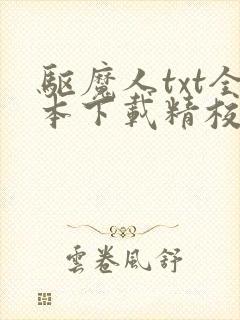 驅魔人txt全
本下載精校
雲卷風舒